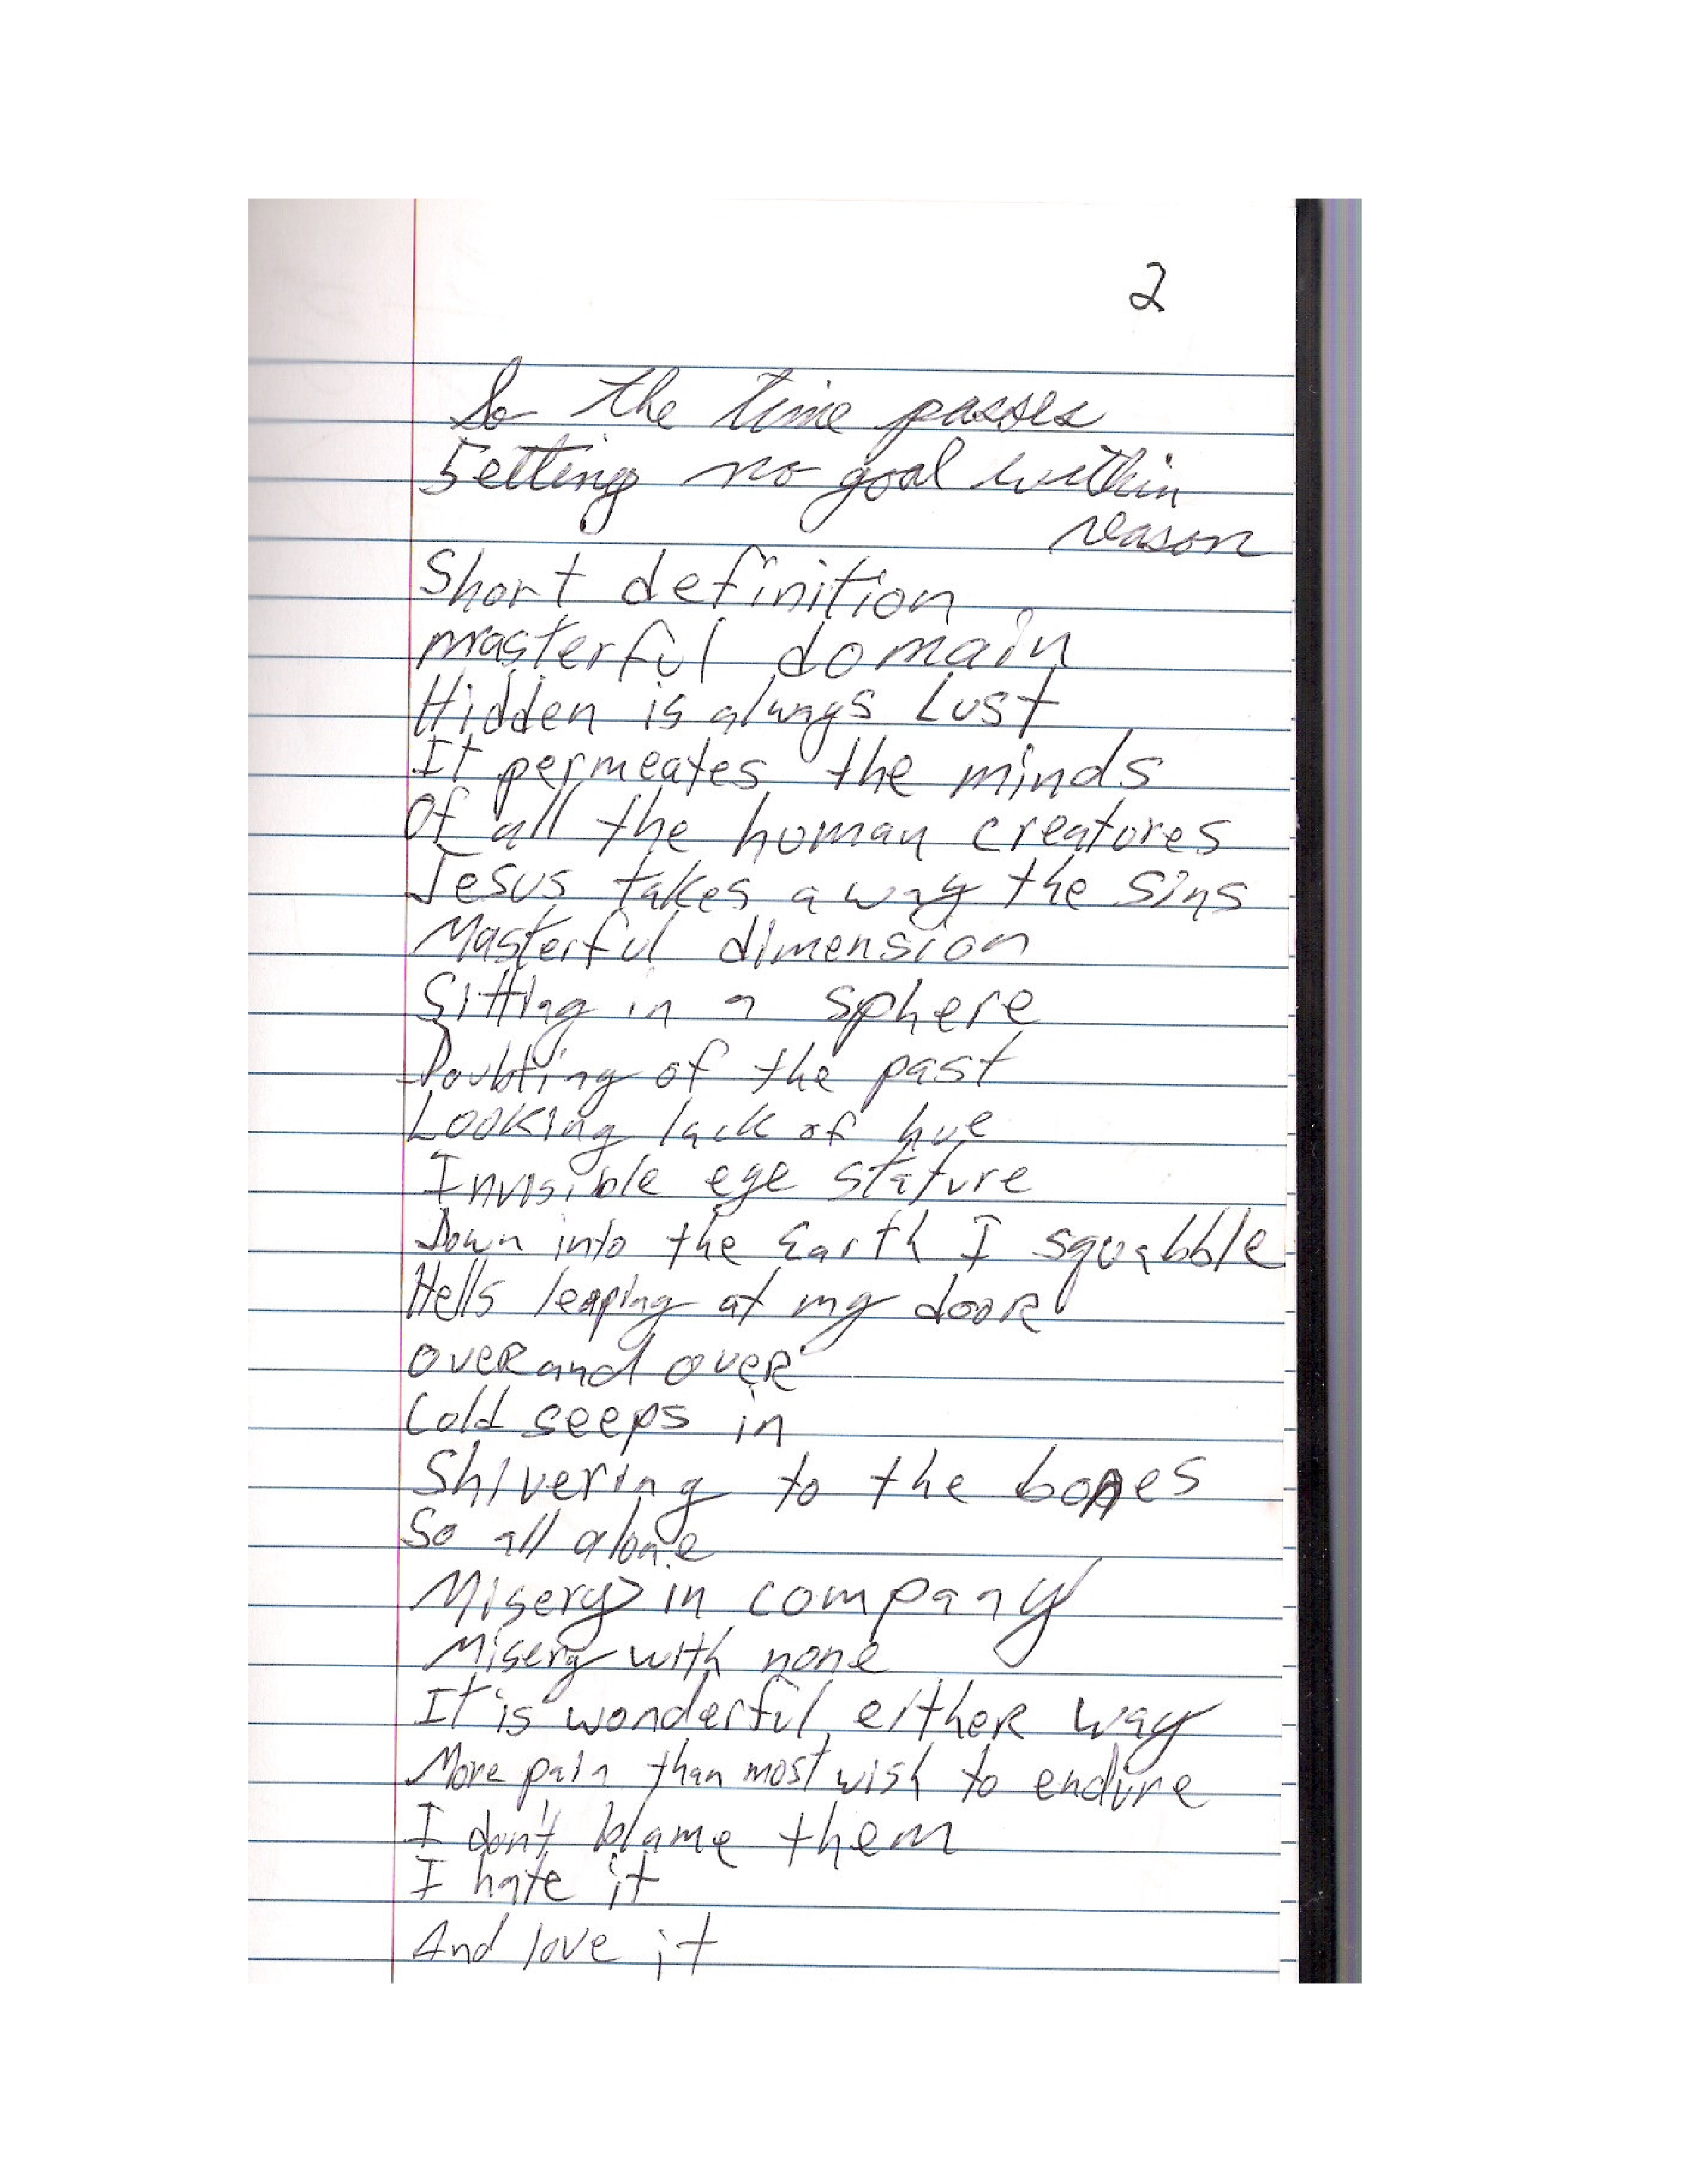 2
So the time passes
Setting no goal within
reason
Short definition
masterful domain
Hidden is always Lust
It permeates the minds
Of all the human creatures
Jesus takes away the sins
Masterful dimension
Sitting in a sphere
Doubting of the past
Looking lack of hue
Invisible eye stature
Down into the Earth I squabble
Hells leaping at my door
over and over
Cold seeps in
Shivering to the bones
So all alone
Misery in company
Misery with none
It is wonderful either way
More pain than most wish to endure
I don't blame them
I hate it
And love it